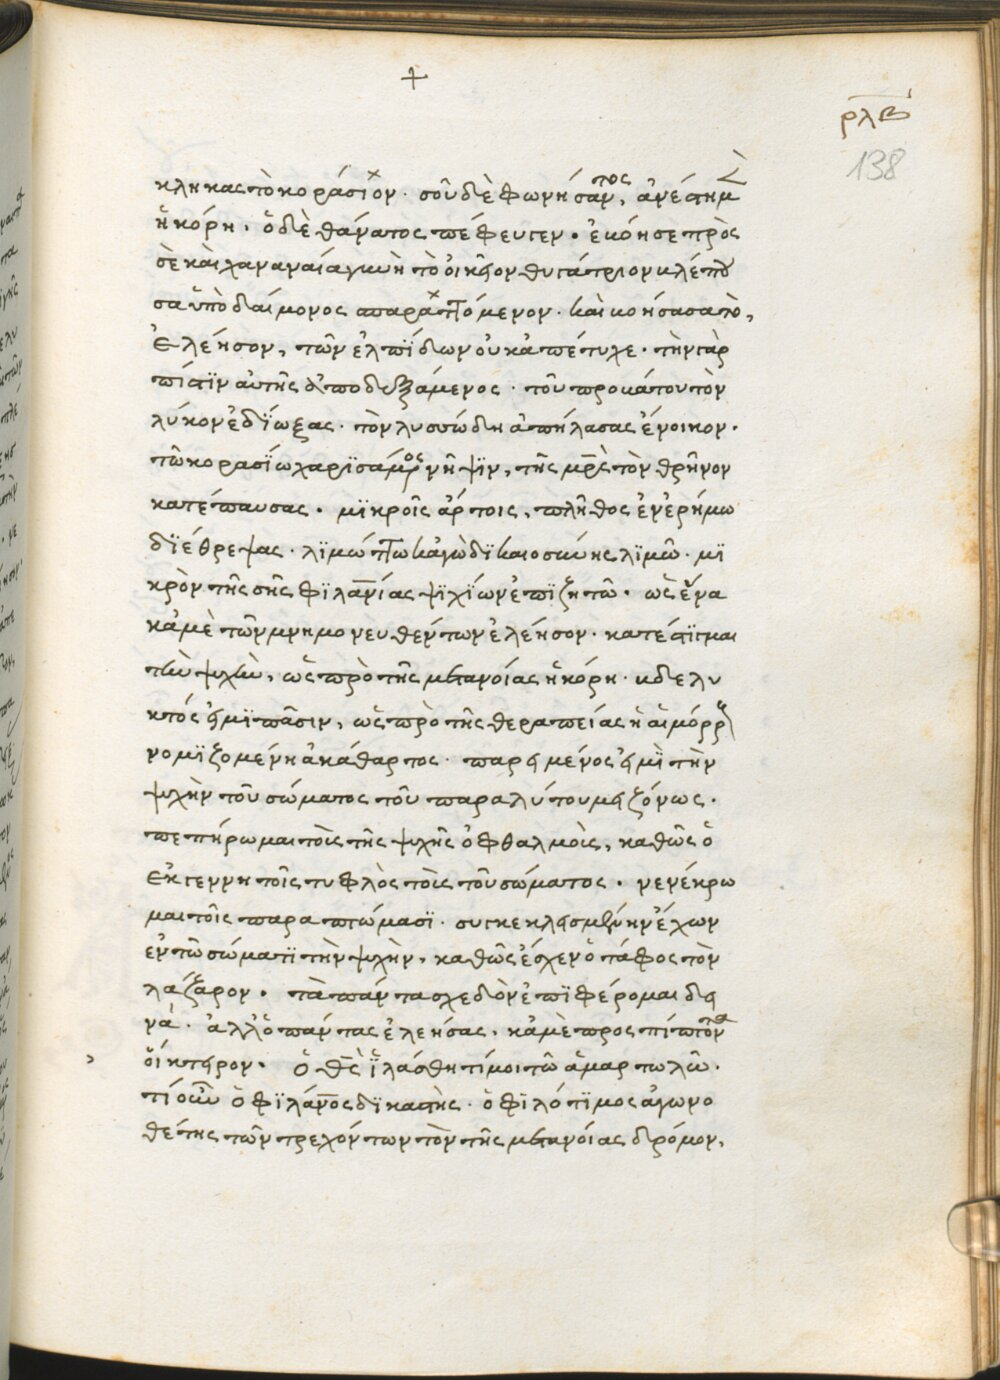 +
ρλβ
138
κληκας τὸ κοράσιον· σοῦ δὲ φωνήσαντος, ἀνέστη μὲν
ἡ κόρη· ὁ δὲ θάνατος πέφευγεν· ἐβόησε πρὸς
σὲ καὶ χαναναία γυνὴ τὸ οἰκεῖον θυγάτριον βλέπου
σα ὑπὸ δαίμονος σπαραττόμενον· καὶ βοήσασα τὸ,
ἐλέησον, τῶν ἐλπίδων οὐκ ἀπέτυχε· τὴν γὰρ
πίστϊν αὐτῆς ἀποδεξάμενος· τοῦ προβάτου τὸν
λύκον ἐδίωξας· τὸν λυσσώδη ἀπήλασας ἔνοικον·
τῶ κορασίω χαρϊσάμενος νῆψϊν, τῆς μρ̅ς τὸν θρῆνον
κατέπαυσας· μϊκροῖς ἄρτοις, πλῆθος ἐν ἐρήμω
δϊέθρεψας· λϊμώττω κἀγὼ δϊκαιοσύνης λϊμῶ· μϊ
κρὸν τῆς σῆς φϊλαν̅ίας ψϊχίων ἐπϊζητῶ· ὡς ἕνα
κἀμὲ τῶν μνημονευθέντων ἐλέησον· κατέστϊγμαι
τὴν ψυχὴν, ὡς πρὸ τῆς μετανοίας ἡ κόρη· βδελυ
κτός εἰμϊ πᾶσιν, ὡς πρὸ τῆς θεραπείας ἡ αἱμόρρ
νομϊζομένη ἀκάθαρτος· παρειμένος εἰμὶ τὴν
ψυχὴν τοῦ σώματος τοῦ παραλύτου μειζόνως·
πεπήρωμαι τοῖς τῆς ψυχῆς ὀφθαλμοῖς, καθὼς ὁ
ἐκ γεννητοῖς τυφλὸς τοῖς τοῦ σώματος· νενέκρω
μαι τοῖς παραπτώμασϊ· συγκεκλεισμένην ἔχων
ἐν τῶ σώματϊ τὴν ψυχὴν, καθὼς ἔσχεν ὁ τάφος τὸν
λάζαρον· τὰ πάντα σχεδὸν ἐπϊφέρομαι δει
νά· ἀλλ' ὁ πάντας ἐλεήσας, κἀμὲ προσπίπτοντα
οἴκτειρον· ὁ θς̅ ἱλάσθητί μοι τῶ ἁμαρτωλῶ·
τί οὖν ὁ φϊλάν̅ος δϊκαστὴς· ὁ φϊλότϊμος ἀγωνο
θέτης τῶν τρεχόντων τὸν τῆς μετανοίας δρόμον,